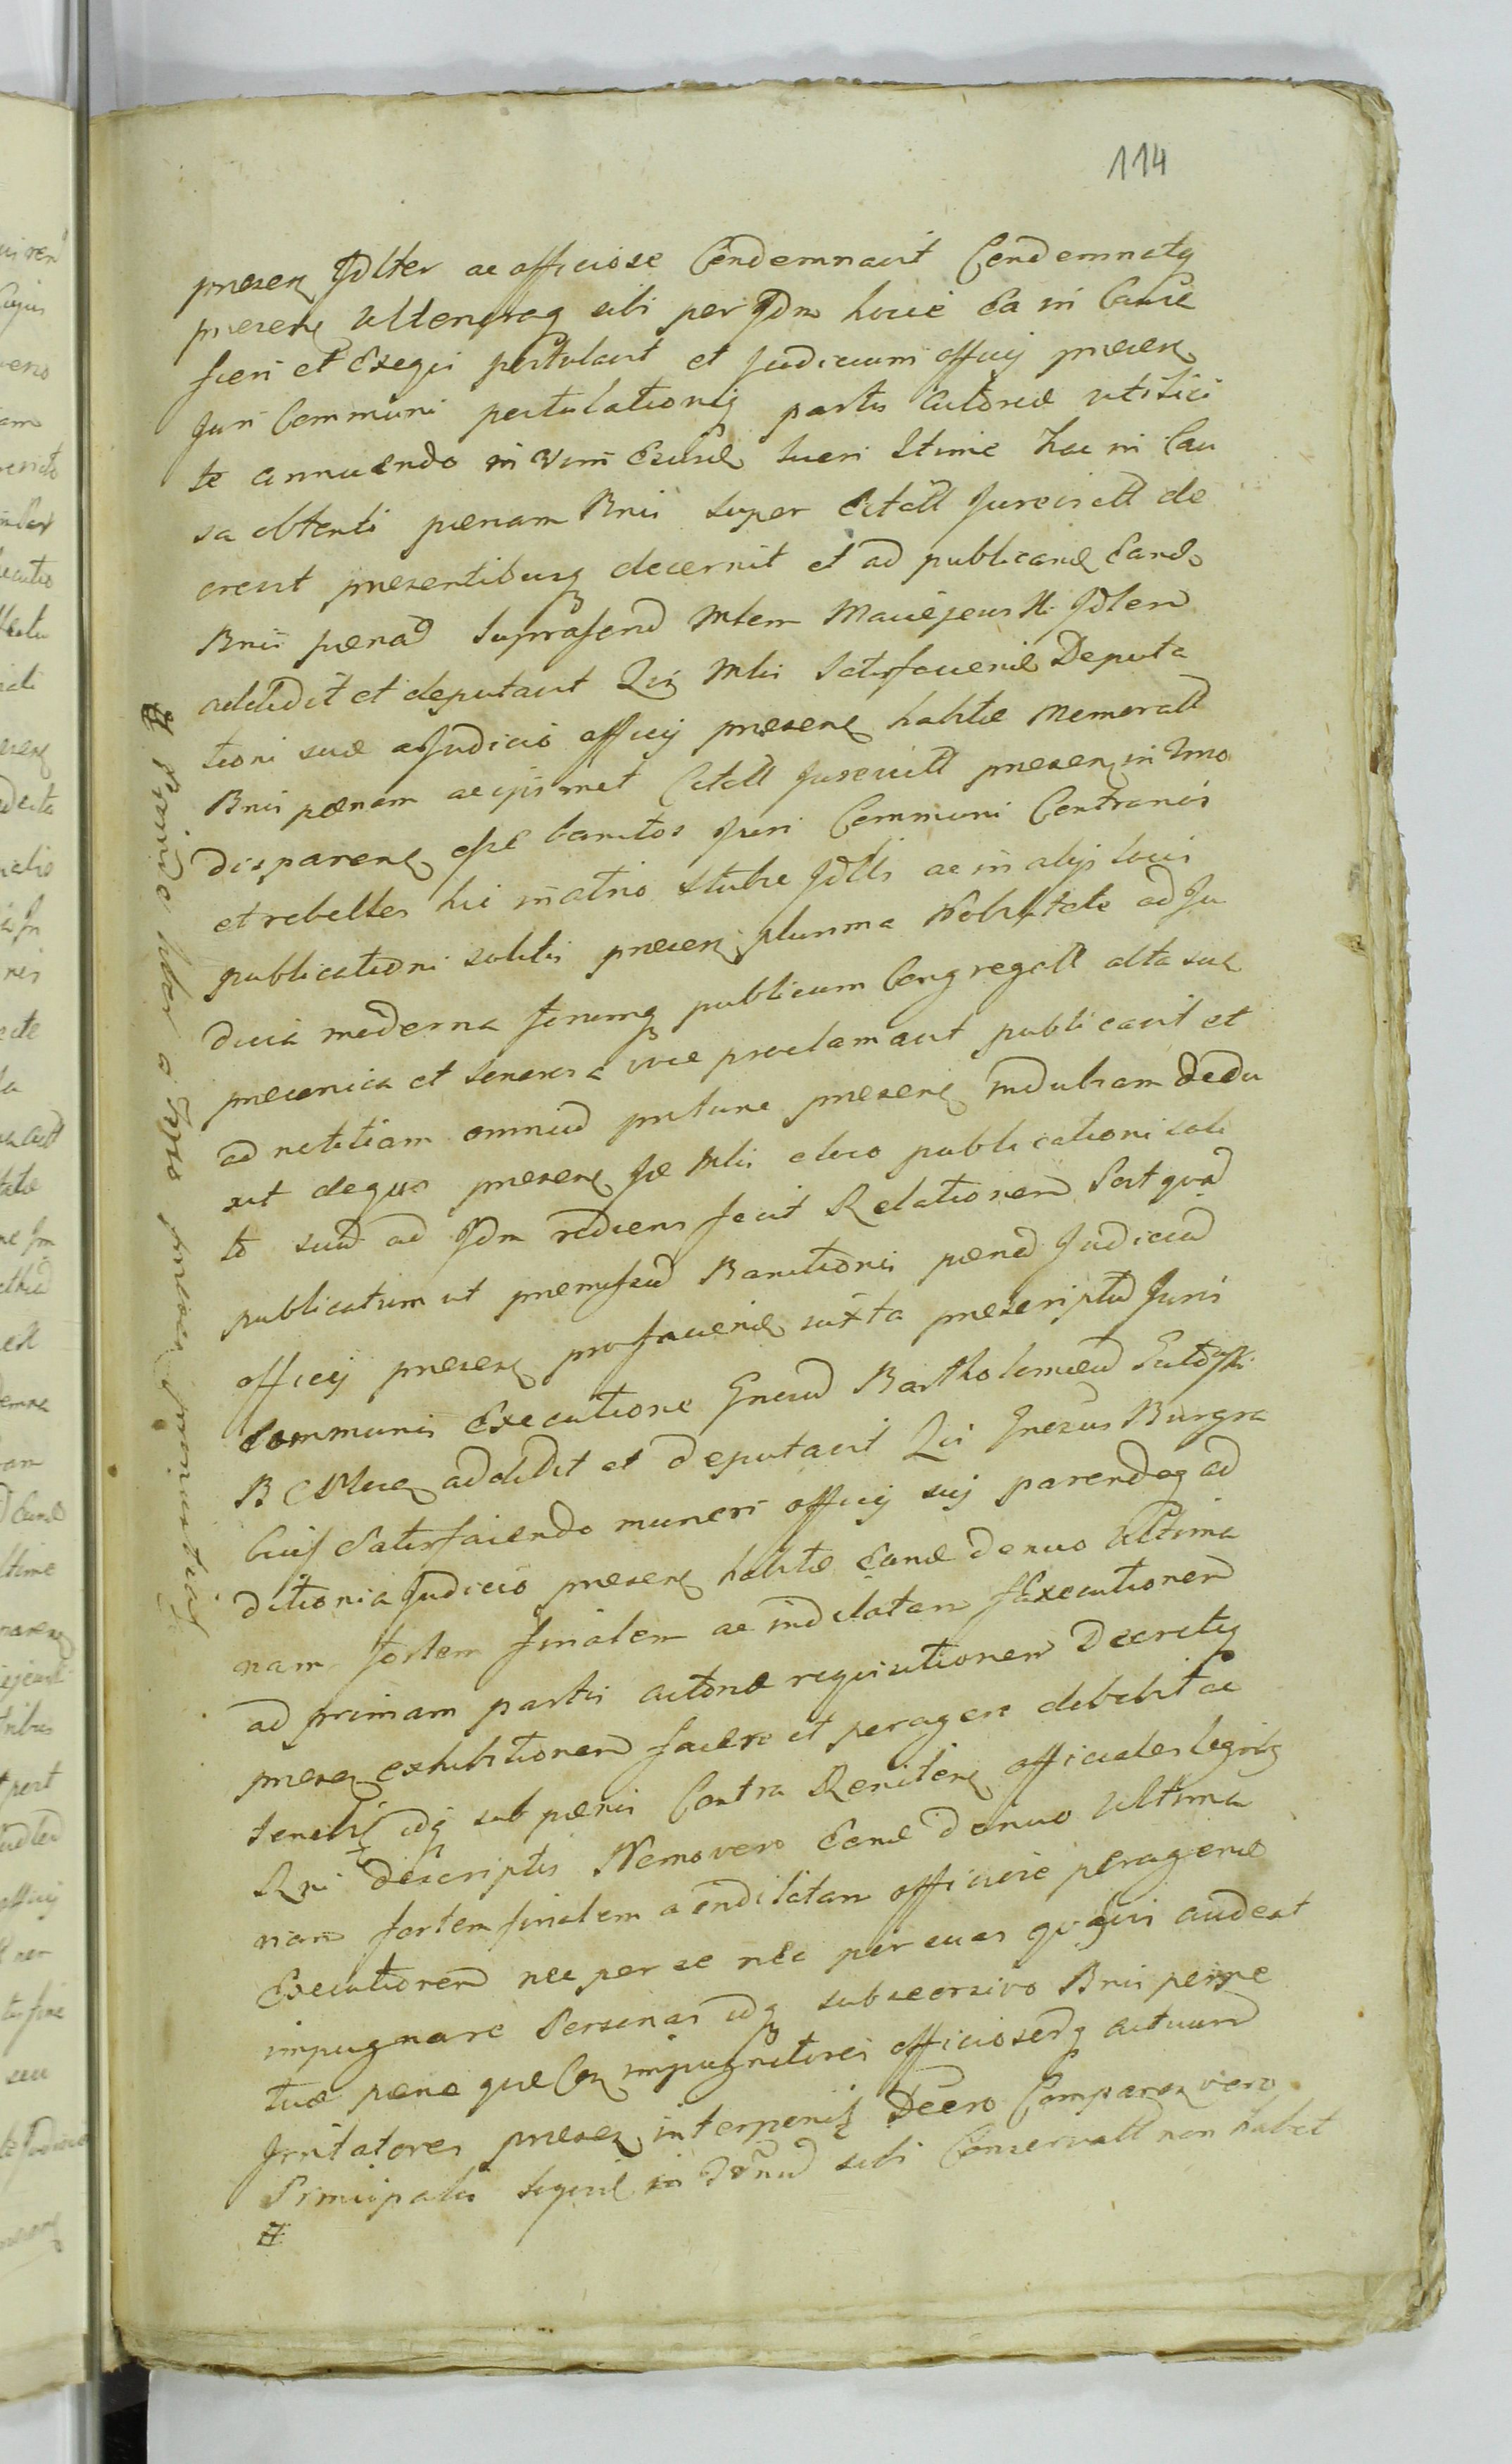 114
presen Jdlter ac officiose Condemnavit Condemnatq
presen ulteriusq sibi per Jdm hocce Ea in Causa
fieri et Exequi postulavit et Judicium officij presen
Juri Communi postulationiq partis Actoreæ
te annuendo in vim Lucri Ltime hac in Cau
sa obtenti pœnam Bnis super Citatt de
crevit presentibusq decernit et ad publicand Eand
Bnis pœnad Mlem Maciejewski Jdlem
addidit et deputavit Qui Mlis Satisfaciend Deputa
tioni suæ a Judicio officij presen habitæ Memoratt
Bnis pœnam ac ipsimet Citatt presen in Jmo
disparen esse banitos Juri Communi Contrarios
et rebelles hic in atrio Stubæ Jdlis ac in alijs locis
publicationi solitis presen plurima Nobilitate ad Ju
dicia moderna forumq publicum Congregatt alta sua
preconica et sonorosa voce proclamavit publicavit et
ad notitiam omniud presen indubiam dedu
xit dequo presen Mlis eloco publicationi soli
to suud ad Jdm rediens fecit Relationem Post quad
publicatum ut premissud Banitionis pœnad Judiciud
officij presen pro faciend iuxta prescriptud Juris
Communis Executione Gnesud Bartholomæud
B C addidit et deputavit Qui Gnesus Burgra
bius Satisfaciendo muneri officij sui parendoq ad
ditioni a Judicio presen habitæ Eand denuo Ultima
nam fortem finalem ac indilatam Executionem
ad primam partis Actoreæ requisitionem Decretiq
presen exhibitionem facere et peragere debebit ac
tenebit idq sub pœnis Contra Reniten officiales legibq
Rni descriptis Nemo vero Eand denuo Ultima
nam fortem finalem a indilatam officiose peragend
Executionem nec per se nec per suas quasvis audeat
impugnare Personas idq sub recersivo Bnis perpe
tuæ pœna quæ Con impugnatores officioserq actuum
Irritatores presen interponit Decro Comparen vero
Principalis in sibi Conservatt non habet
#
# Primo